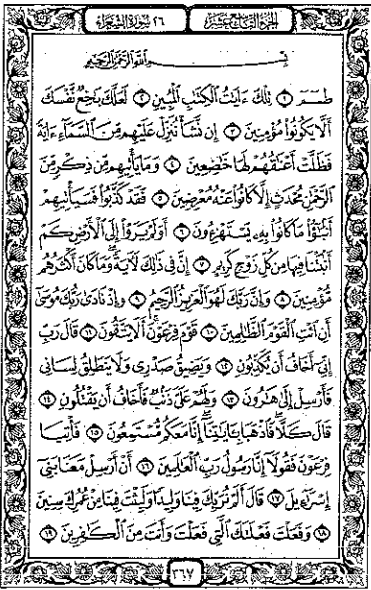 الجزء التاسع عشر
٢٦ سورة الشعراء
بِسْمِ اللَّهِ الرَّحْمَٰنِ الرَّحِيمِ
طسٓمٓ ١ تِلْكَ ءَايَٰتُ ٱلْكِتَٰبِ ٱلْمُبِينِ ٢ لَعَلَّكَ بَٰخِعٌ نَّفْسَكَ
أَلَّا يَكُونُوا۟ مُؤْمِنِينَ ٣ إِن نَّشَأْ نُنَزِّلْ عَلَيْهِم مِّنَ ٱلسَّمَآءِ ءَايَةً
فَظَلَّتْ أَعْنَٰقُهُمْ لَهَا خَٰضِعِينَ ٤ وَمَا يَأْتِيهِم مِّن ذِكْرٍ مِّنَ
ٱلرَّحْمَٰنِ مُحْدَثٍ إِلَّا كَانُوا۟ عَنْهُ مُعْرِضِينَ ٥ فَقَدْ كَذَّبُوا۟ فَسَيَأْتِيهِمْ
أَنۢبَٰٓؤُا۟ مَا كَانُوا۟ بِهِۦ يَسْتَهْزِءُونَ ٦ أَوَلَمْ يَرَوْا۟ إِلَى ٱلْأَرْضِ كَمْ
أَنۢبَتْنَا فِيهَا مِن كُلِّ زَوْجٍ كَرِيمٍ ٧ إِنَّ فِى ذَٰلِكَ لَءَايَةً وَمَا كَانَ أَكْثَرُهُم
مُّؤْمِنِينَ ٨ وَإِنَّ رَبَّكَ لَهُوَ ٱلْعَزِيزُ ٱلرَّحِيمُ ٩ وَإِذْ نَادَىٰ رَبُّكَ مُوسَىٰٓ
أَنِ ٱئْتِ ٱلْقَوْمَ ٱلظَّٰلِمِينَ ١٠ قَوْمَ فِرْعَوْنَ أَلَا يَتَّقُونَ ١١ قَالَ رَبِّ
إِنِّىٓ أَخَافُ أَن يُكَذِّبُونِ ١٢ وَيَضِيقُ صَدْرِى وَلَا يَنطَلِقُ لِسَانِى
فَأَرْسِلْ إِلَىٰ هَٰرُونَ ١٣ وَلَهُمْ عَلَىَّ ذَنۢبٌ فَأَخَافُ أَن يَقْتُلُونِ ١٤
قَالَ كَلَّا فَٱذْهَبَا بِـَٔايَٰتِنَآ إِنَّا مَعَكُم مُّسْتَمِعُونَ ١٥ فَأْتِيَا
فِرْعَوْنَ فَقُولَآ إِنَّا رَسُولُ رَبِّ ٱلْعَٰلَمِينَ ١٦ أَنْ أَرْسِلْ مَعَنَا بَنِىٓ
إِسْرَٰٓءِيلَ ١٧ قَالَ أَلَمْ نُرَبِّكَ فِينَا وَلِيدًا وَلَبِثْتَ فِينَا مِنْ عُمُرِكَ سِنِينَ
١٨ وَفَعَلْتَ فَعْلَتَكَ ٱلَّتِى فَعَلْتَ وَأَنتَ مِنَ ٱلْكَٰفِرِينَ ١٩
٣٦٧